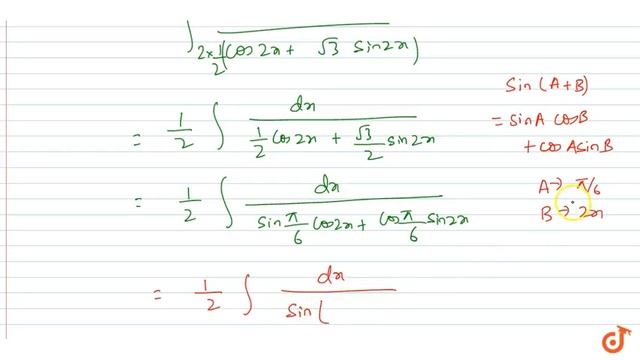 ∫ 2×1/2 (cos 2x + √3 sin 2x)
= 1/2 ∫ dx / (1/2 cos 2x + √3/2 sin 2x)
= 1/2 ∫ dx / (sin π/6 cos 2x + cos π/6 sin 2x)
= 1/2 ∫ dx / sin (
Sin (A+B)
= Sin A cos B
+ cos A sin B
A → π/6
B → 2x